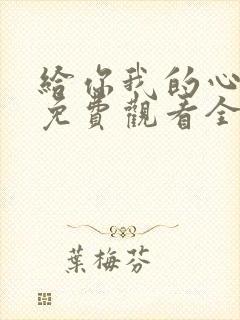 給你我的心
免費觀看全
葉梅芬